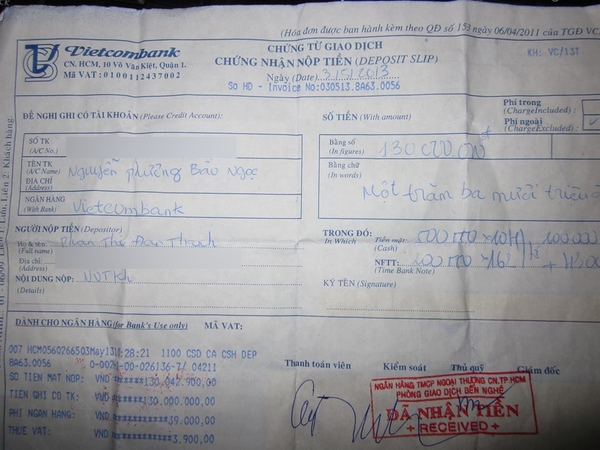 (Hóa đơn được ban hành kèm theo QĐ số 153 ngày 06/04/2011 của TGĐ VC
Vietcombank
CN. HCM, 10 Võ Văn Kiệt, Quận 1.
Mã VAT: 0100112437002
CHỨNG TỪ GIAO DỊCH
CHỨNG NHẬN NỘP TIỀN (DEPOSIT SLIP)
Ngày (Date) 3/5/2013
So HD - Invoice No:030513.BA63.0056
KH: VC/13T
Phí trong
(ChargeIncluded)
Phí ngoài
(ChargeExcluded)
ĐỀ NGHỊ GHI CÓ TÀI KHOẢN (Please Credit Account):
SỐ TIỀN (With amount)
SỐ TK
(A/C No.)
TÊN TK
(A/C Name)
Nguyễn Phương Bảo Ngọc
ĐỊA CHỈ
(Address)
NGÂN HÀNG
(With Bank)
Vietcombank
Bằng số
(In figures)
130.000.000đ
Bằng chữ
(In words)
Một trăm ba mươi triệu
NGƯỜI NỘP TIỀN (Depositor)
Họ & tên
(Full name)
Phan Thị Đan Thanh
Địa chỉ
(Address)
NỘI DUNG NỘP:
(Details)
TRONG ĐÓ:
(In Which
Tiền mặt:
(Cash)
NFTT:
(Time Bank Note)
KÝ TÊN (Signature)
DÀNH CHO NGÂN HÀNG (for Bank's Use only)
MÃ VAT:
007 HCM0560266503May13 1100 CSD CA CSH DEP
BA63.0056
SO TIEN MAT NOP: VND 130,042,900,00
TIEN GHI CO TK: VND 130.000.000,00
PHI NGAN HANG: VND 39.000,00
THUE VAT: VND 3.900,00
Thanh toán viên
Kiểm soát
Thủ quỹ
Giám đốc
NGÂN HÀNG TMCP NGOẠI THƯƠNG CN.TP.HCM
PHÒNG GIAO DỊCH BẾN NGHÉ
ĐÃ NHẬN TIỀN
+ RECEIVED +
Lưu, Liên 2: Khách hàng.